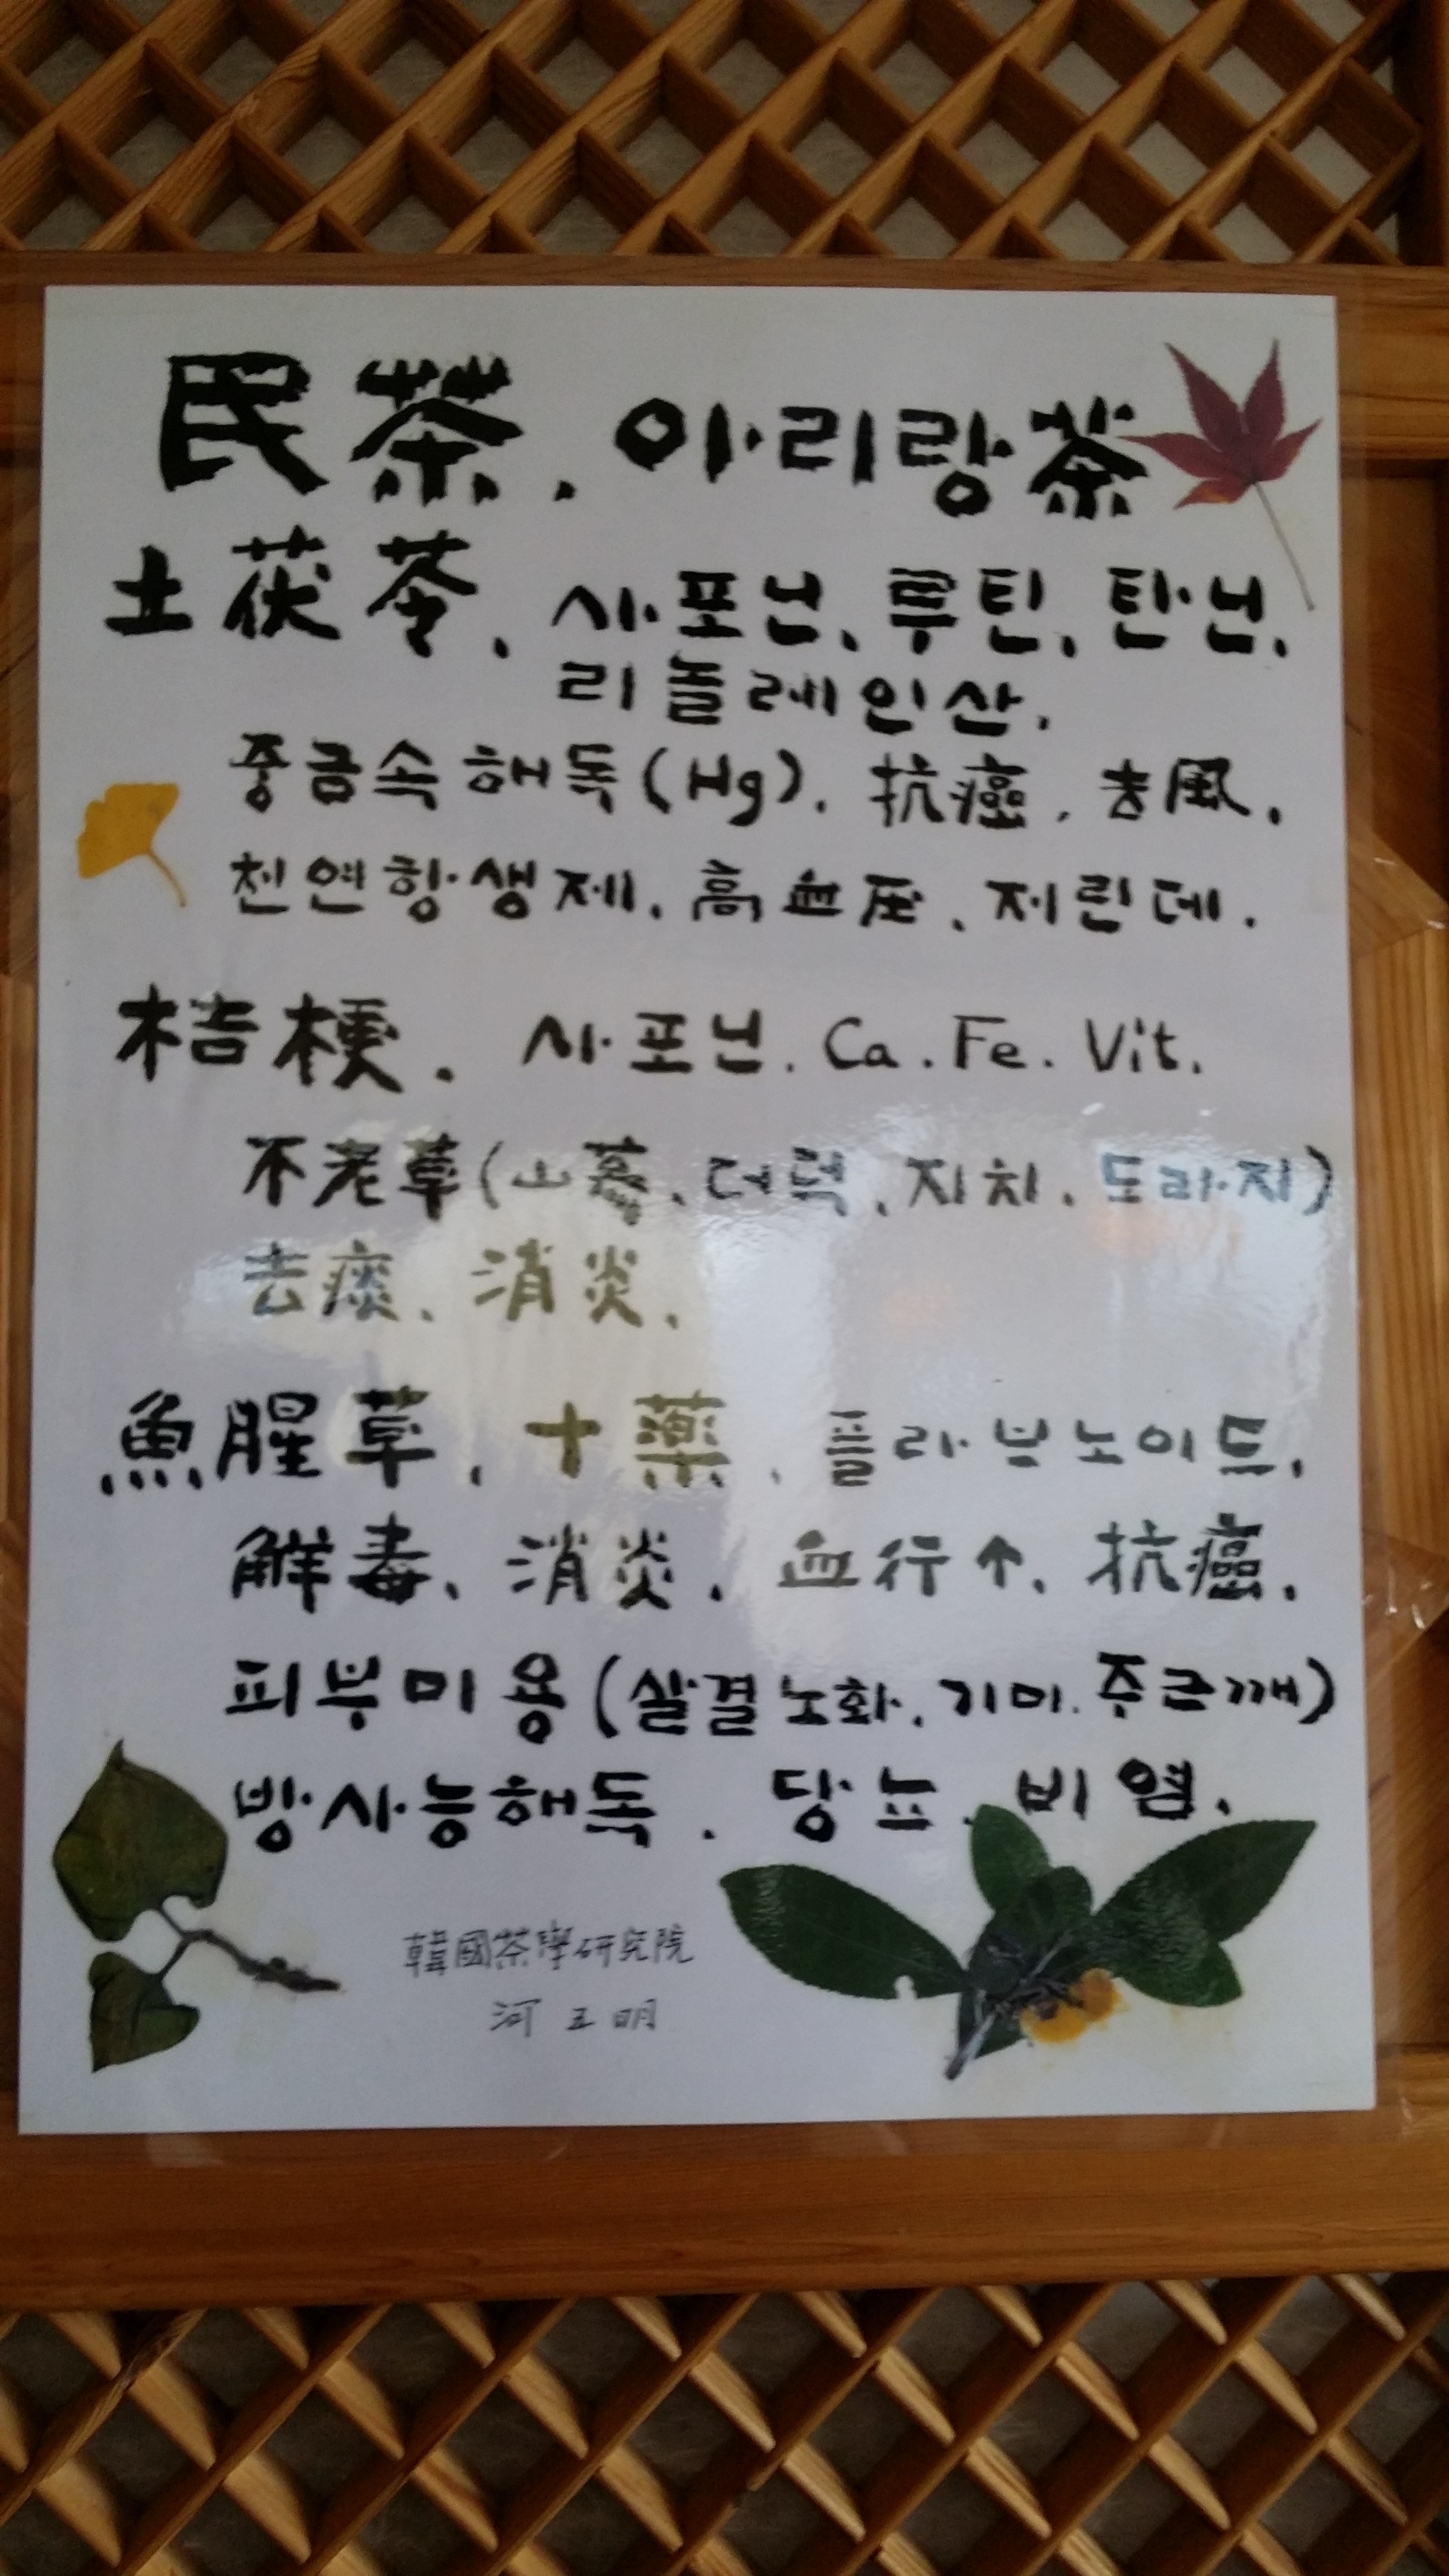 民茶. 아리랑茶
土茯苓. 사포닌. 루틴. 탄닌.
리놀레인산.
중금속해독(Hg). 抗癌. 去風.
천연항생제. 高血压. 저린데.
桔梗. 사포닌. Ca. Fe. Vit.
不老草(山蔘. 더덕. 지치. 도라지)
去痰. 消炎.
魚腥草. 十薬. 플라보노이드.
解毒. 消炎. 血行↑. 抗癌.
피부미용(살결노화. 기미. 주근깨)
방사능해독. 당뇨. 비염.
韓國茶學硏究院
河五明